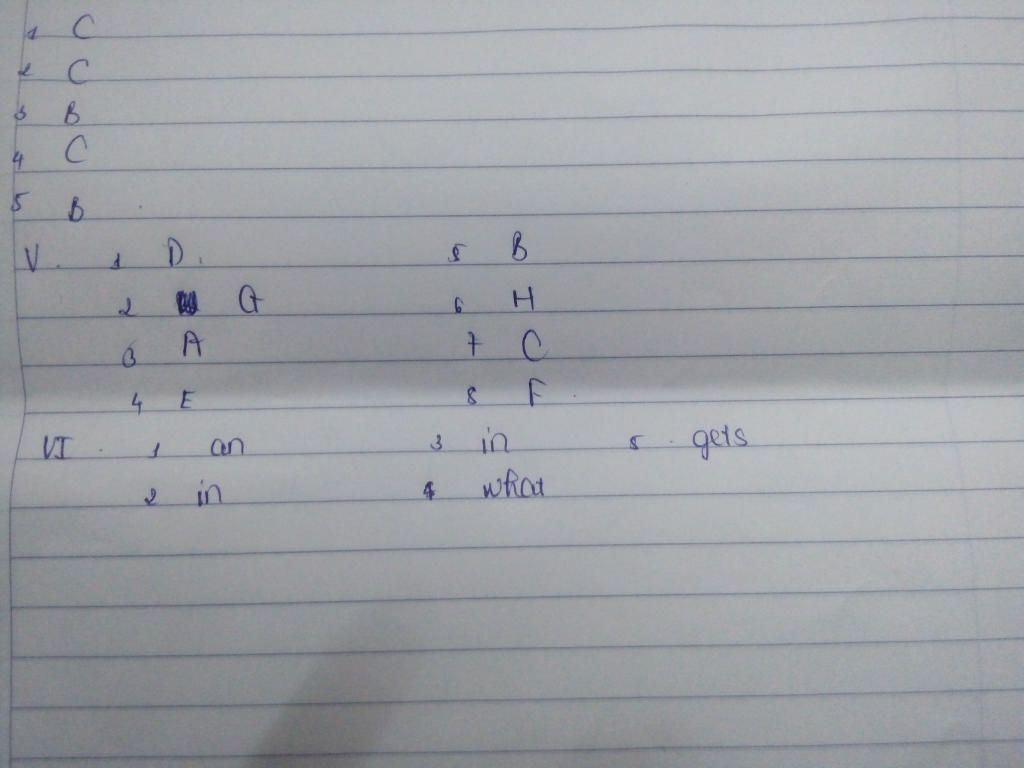 1 C
2 C
3 B
4 C
5 B
V. 1 D. 5 B
2 G 6 H
3 A 7 C
4 E 8 F.
VI. 1 an 3 in 5. gets
2 in 4 what